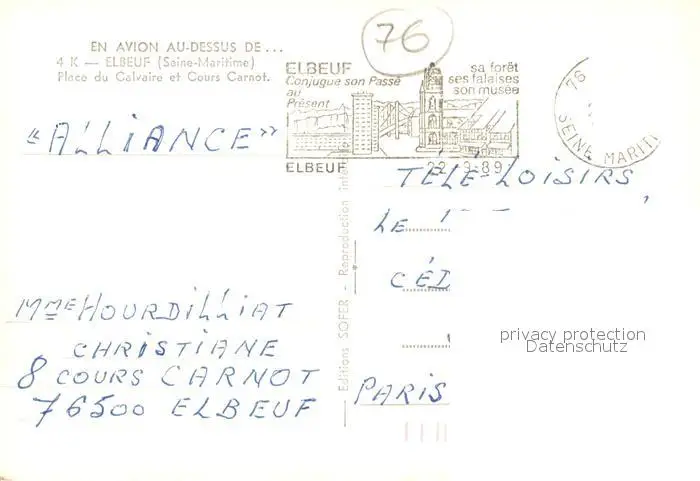 EN AVION AU-DESSUS DE...
4 K — ELBEUF (Seine-Maritime)
Place du Calvaire et Cours Carnot.
76
ELBEUF
Conjugue son Passé
au
Présent
sa forêt
ses falaises
son musée
ELBEUF
76
SEINE MARITI
"ALLIANCE"
TÉLÉ-LOISIRS,
LE
CÉD
PARIS
MME HOURDILLIAT
CHRISTIANE
8 COURS CARNOT
76500 ELBEUF
Editions SOFER - Reproduction
privacy protection
Datenschutz